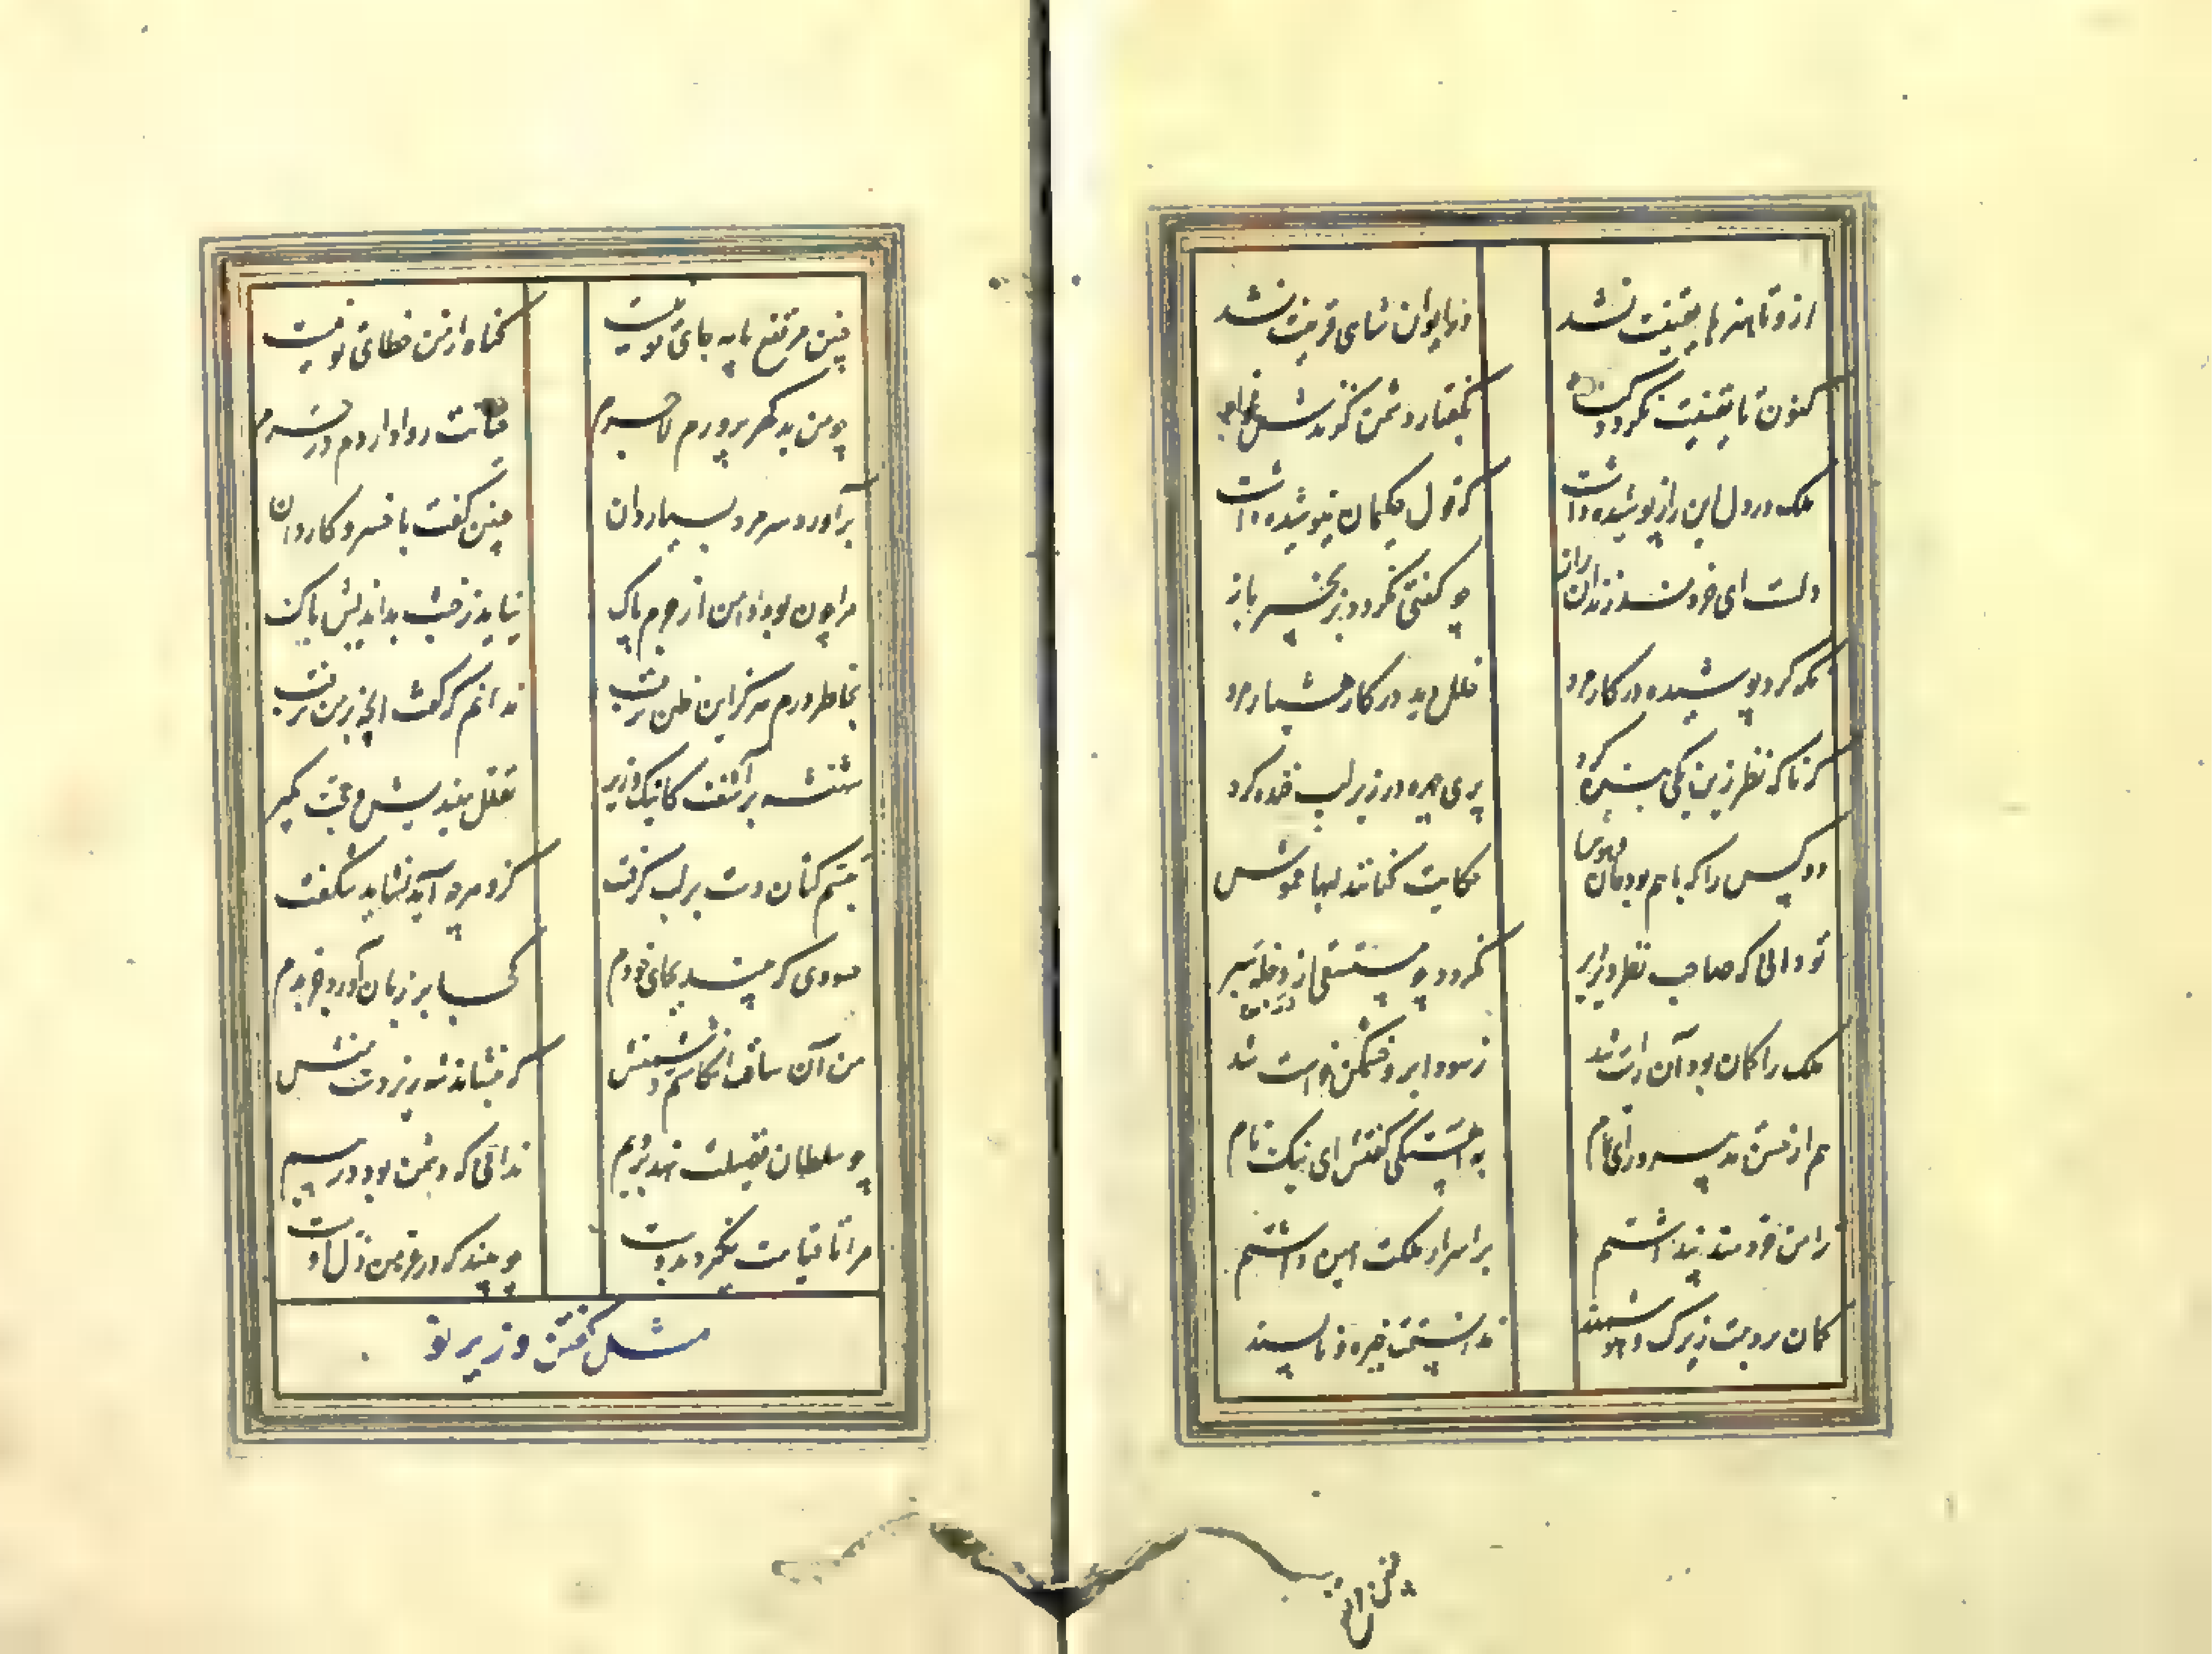 ازو تا هنرها یقینت نشد در ایوان شاهی قرینت نشد
کنون تا یقینت نگردد گناه بگفتار دشمن گزندش مخواه
ملک در دل این راز پوشیده داشت که قول حکیمان نیوشیده داشت
دلست ای خردمند زندان راز چو گفتی نگردد بزنجیر باز
نگه کرد پوشیده در کار مرد خلل دید در کار هشیار مرد
که ناگه نظر زین یکی بنده کرد پری چهره در زیر لب خنده کرد
دو کس را که با هم بود جان و هوش حکایت کنانند لبها خموش
تو دانی که صاحب نظر دیر دیر نگردد چو مستسقی از دجله سیر
ملک را گمان بود آن راست شد ز سودا برو خشمگین خواست شد
هم از حسن تدبیر و رای تمام به آهستگی گفتش ای نیک نام
ترا من خردمند پنداشتم بر اسرار ملکت امین داشتم
گمان بردمت زیرک و هوشمند ندانستمت خیره و ناپسند
چنین
چنین مرتفع پایه جای تو نیست گناه از من خطای تو نیست
چو من بدگهر پرورم لاجرم خیانت روا دارد در حرم
برآورد سر مرد بسیاردان چنین گفت با خسرو کاردان
مرا چون بود دامن از جرم پاک نیاید ز خبث بداندیش باک
بخاطر درم هرگز این ظن نرفت ندانم که گفت آنچه بر من نرفت
شهنشه برآشفت کاینک وزیر تعلل میندیش و حجت مگیر
تبسم کنان دست بر لب گرفت کزو هرچه آید نشاید شگفت
حسودی که بیند بجای خودم کجا بر زبان آورد جز بدم
من آن ساعت انگاشتم دشمنش که بنشاند شه زیردست منش
چو سلطان فضیلت نهد بر ویم ندانی که دشمن بود در پیم
مرا تا قیامت نگیرد بدوست چو بیند که در عز من ذل اوست
مثل گفتن وزیر نو